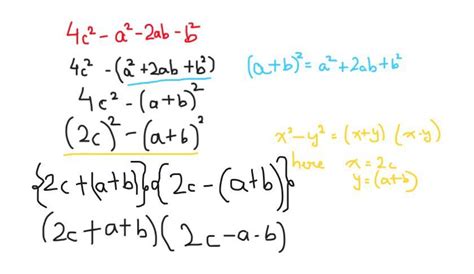 4c² - a² - 2ab - b²
4c² - (a² + 2ab + b²)
(a+b)² = a² + 2ab + b²
4c² - (a+b)²
(2c)² - (a+b)²
x² - y² = (x+y) (x-y)
here x = 2c
y = (a+b)
{2c + (a+b)}{2c - (a+b)}
(2c + a + b) (2c - a - b)